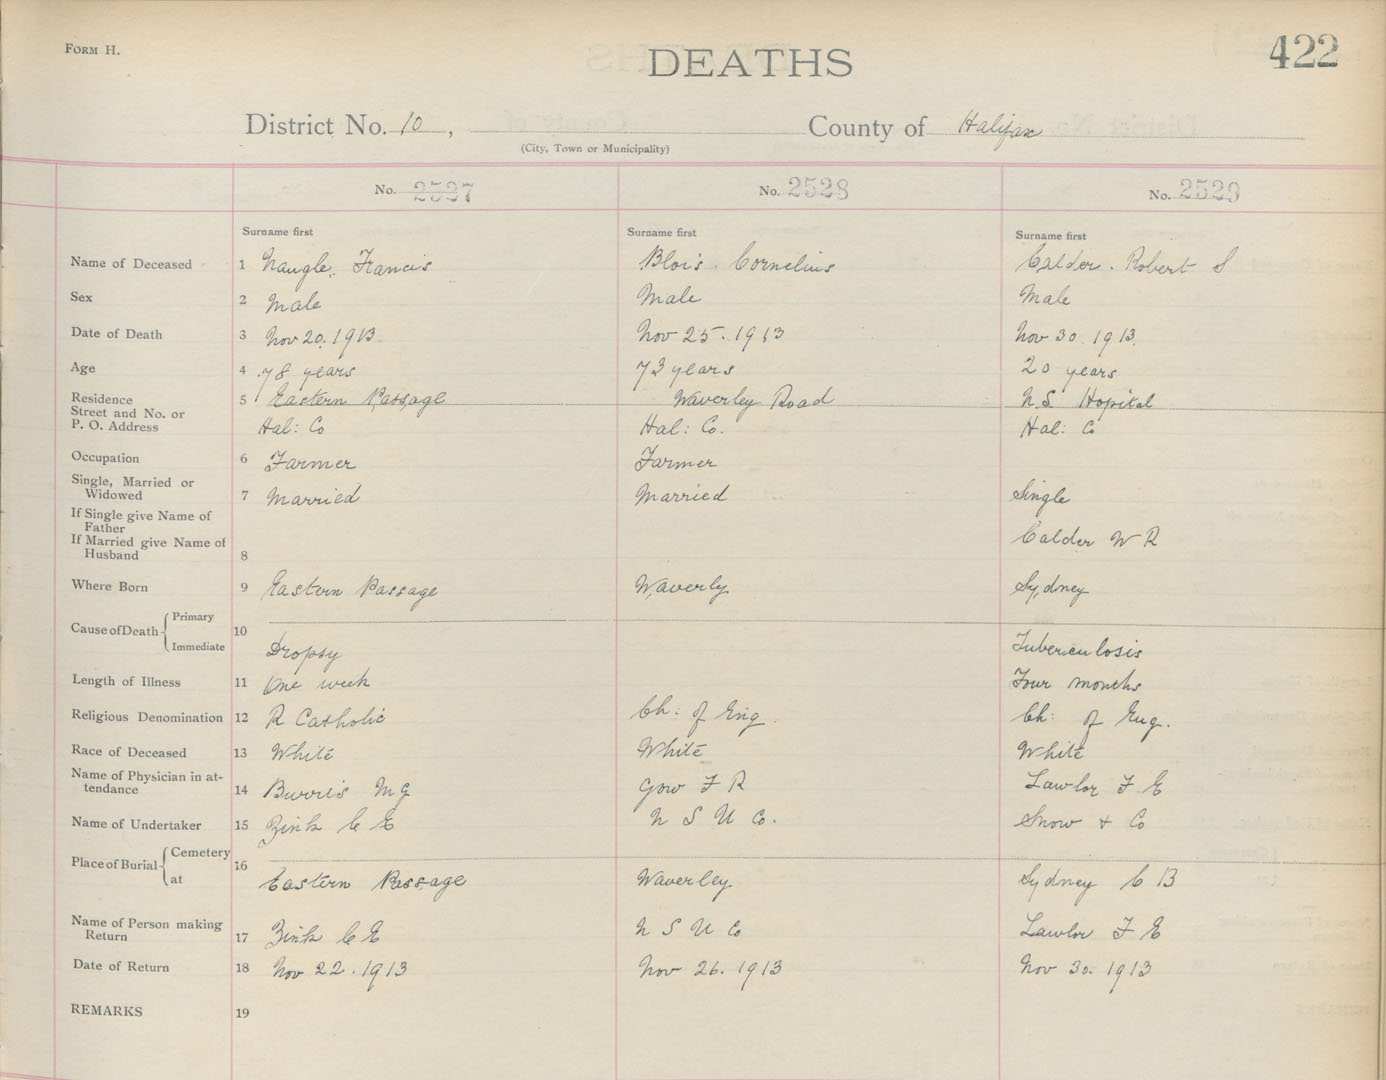 FORM H.
DEATHS
422
District No. 10 ,
County of Halifax
(City, Town or Municipality)
No. 2527
No. 2528
No. 2529
Surname first
Surname first
Surname first
Name of Deceased 1 Naugle. Francis
Blois. Cornelius
Calder. Robert S
Sex 2 Male
Male
Male
Date of Death 3 Nov 20. 1913
Nov 25. 1913
Nov 30. 1913.
Age 4 78 years
73 years
20 years
Residence 5 Eastern Passage
Waverley Road
N.S. Hopital
Street and No. or
P. O. Address Hal: Co
Hal: Co.
Hal: Co
Occupation 6 Farmer
Farmer
Single, Married or
Widowed 7 Married
Married
Single
If Single give Name of
Father
If Married give Name of
Husband 8
Calder W R
Where Born 9 Eastern Passage
Waverly
Sydney
Cause of Death Primary
10
Immediate Dropsy
Tuberculosis
Length of Illness 11 One week
Four months
Religious Denomination 12 R Catholic
Ch: of Eng.
Ch: of Eng.
Race of Deceased 13 White
White
White
Name of Physician in at-
tendance 14 Burris M G
Gow F R
Lawlor F E
Name of Undertaker 15 Zink C E
N S U Co.
Snow + Co
Place of Burial Cemetery 16
at Eastern Passage
Waverley
Sydney C B
Name of Person making
Return 17 Zink C E
N S U Co
Lawlor F E
Date of Return 18 Nov 22. 1913
Nov 26. 1913
Nov 30. 1913
REMARKS 19